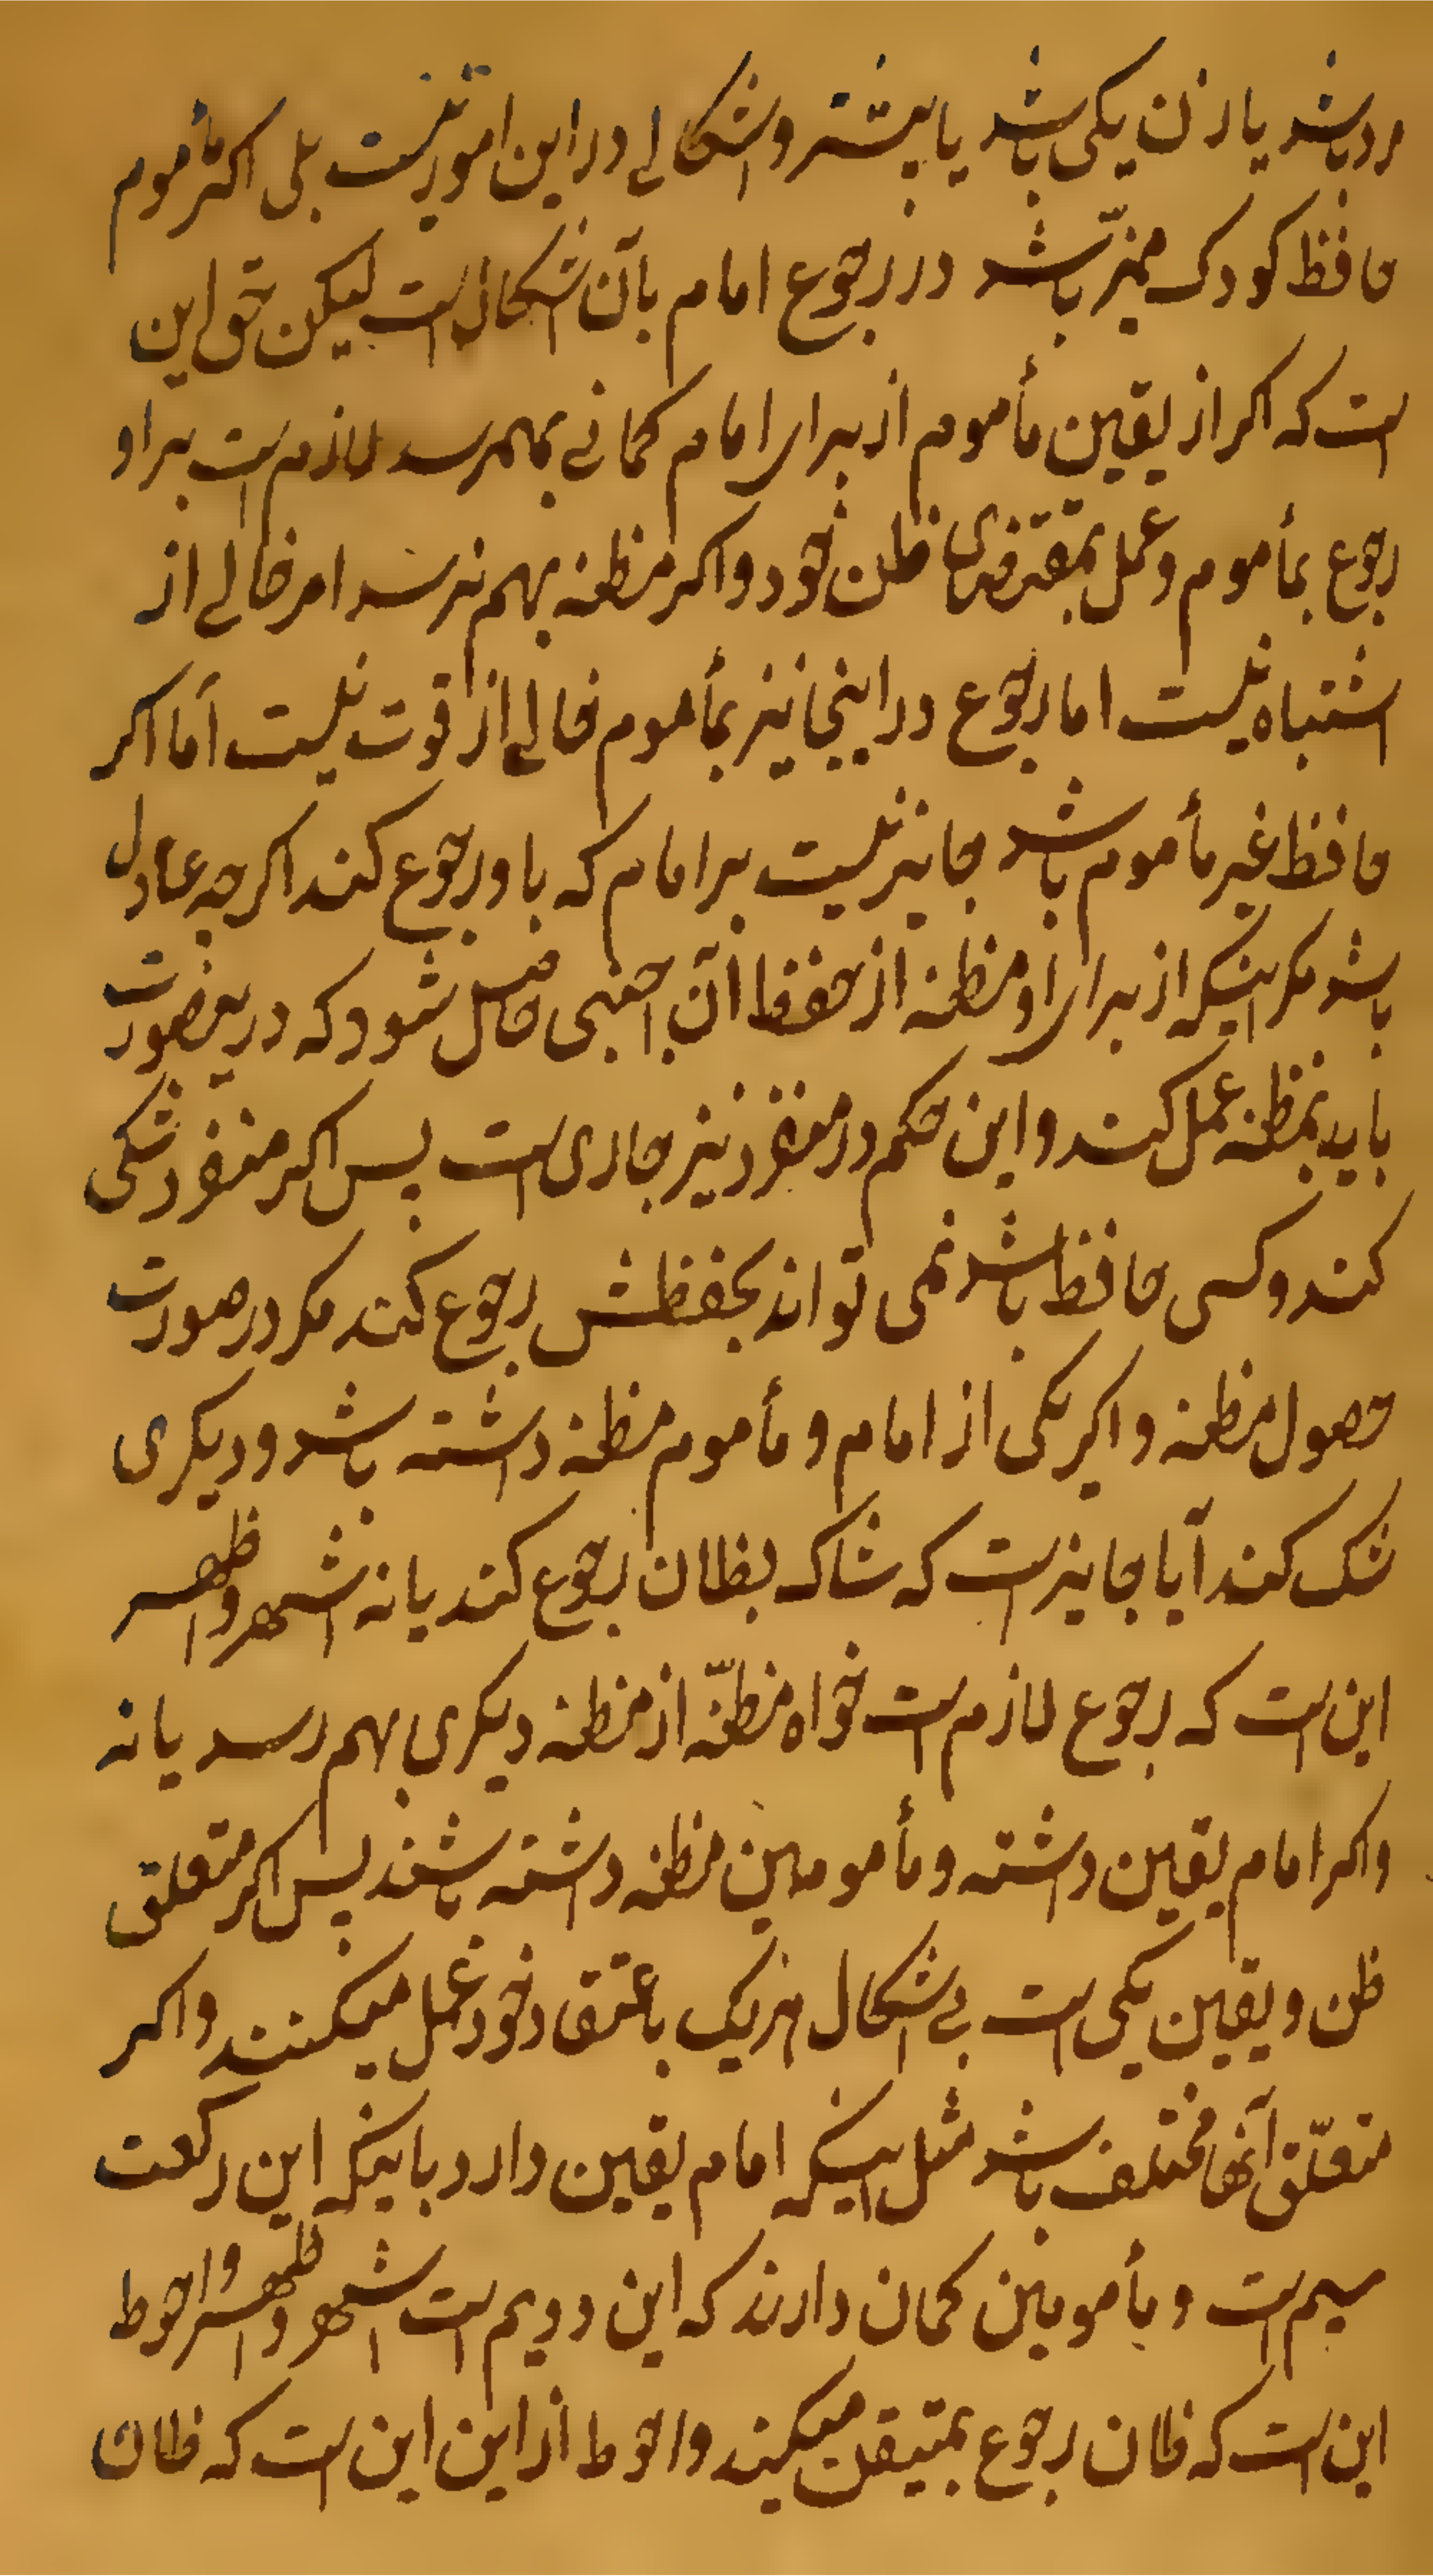 مرد باشد یا زن یکی باشد یا بیشتر و اشکالے در این امور نیست بلی اکر مأموم
حافظ کودک ممیّز باشد در رجوع امام بآن اشکال است لیکن حق این
است که اکر از یقین مأموم از برای امام کمانے بهمرسد لازم است بر او
رجوع بمأموم و عمل بمقتضای ظن خود و اکر مظنه بهم نرسد امر خالے از
اشتباه نیست اما رجوع در اینجا نیز بمأموم خالے از قوت نیست أما اکر
حافظ غیر مأموم باشد جایز نیست بر امام که باو رجوع کند اکرچه عادل
باشد مکر اینکه از برای او مظنه از حفظ آن اجنبی حاصل شود که در یعصورت
باید بمظنه عمل کند و این حکم در منفرد نیز جاری است پس اکر منفرد شکی
کند و کسی حافظ باشد نمی تواند بحفظش رجوع کند مکر در صورت
حصول مظنه و اکر یکی از امام و مأموم مظنه داشته باشد و دیکری
شک کند آیا جایز است که شاک بظان رجوع کند یا نه اشهر و اظهر
این است که رجوع لازم است خواه مظنّه از مظنه دیکری بهم رسد یا نه
و اکر امام یقین داشته و مأمومین مظنه داشته باشند پس اکر متعلق
ظن و یقین یکی است بے اشکال هر یک باعتقاد خود عمل میکنند و اکر
متعلّق آنها مختلف باشد مثل اینکه امام یقین دارد باینکه این رکعت
سیم است و مأمومین کمان دارند که این دویم است اشهر و اظهر و احوط
این است که ظان رجوع بمتیقن میکند و احوط از این این است که ظان